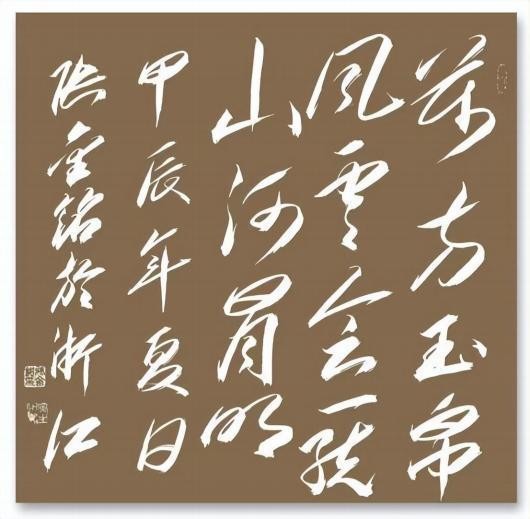 萬方玉帛
风雲会一統
山河日月明
甲辰年夏日
金銘於浙江